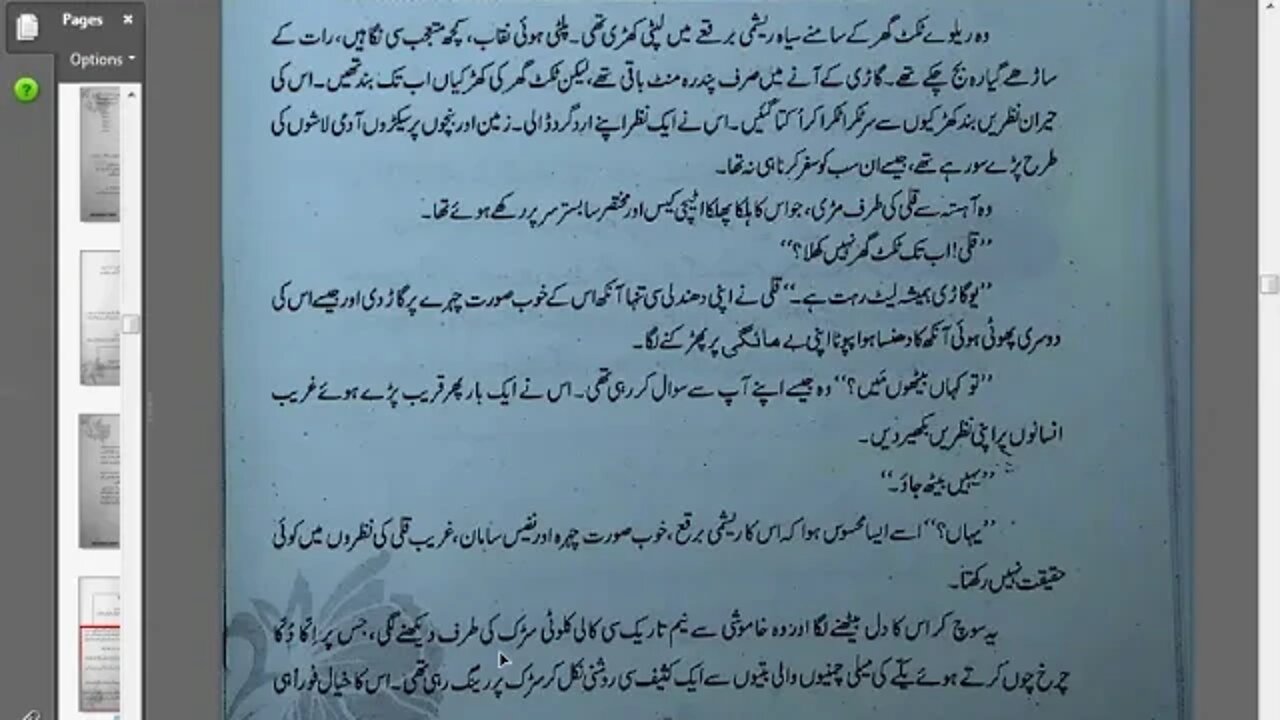 Pages ×
Options
وہ ریلوے ٹکٹ گھر کے سامنے سیاہ ریشمی برقعے میں لپٹی کھڑی تھی۔ پلٹی ہوئی نقاب، کچھ متعجب سی نگاہیں، رات کے
ساڑھے گیارہ بج چکے تھے۔ گاڑی کے آنے میں صرف پندرہ منٹ باقی تھے، لیکن ٹکٹ گھر کی کھڑکیاں اب تک بند تھیں۔ اس کی
حیران نظریں بند کھڑکیوں سے سر ٹکرا ٹکرا کر اُکتا گئیں۔ اس نے ایک نظر اپنے ارد گرد ڈالی۔ زمین اور بنچوں پر سیکڑوں آدمی لاشوں کی
طرح پڑے سو رہے تھے، جیسے ان سب کو سفر کرنا ہی نہ تھا۔
وہ آہستہ سے قلی کی طرف مڑی، جو اس کا ہلکا پھلکا اٹیچی کیس اور مختصر سا بستر سر پر رکھے ہوئے تھا۔
”قلی! اب تک ٹکٹ گھر نہیں کھلا؟“
”یو گاڑی ہمیشہ لیٹ رہت ہے۔“ قلی نے اپنی دھندلی سی تنہا آنکھ اس کے خوب صورت چہرے پر گاڑ دی اور جیسے اس کی
دوسری پھوٹی ہوئی آنکھ کا دھنسا ہوا پپوٹا اپنی بے مائگی پر پھڑکنے لگا۔
”تو کہاں بیٹھوں مَیں؟“ وہ جیسے اپنے آپ سے سوال کر رہی تھی۔ اس نے ایک بار پھر قریب پڑے ہوئے غریب
انسانوں پر اپنی نظریں بکھیر دیں۔
”یہیں بیٹھ جاؤ۔“
”یہاں؟“ اسے ایسا محسوس ہوا کہ اس کا ریشمی برقع، خوب صورت چہرہ اور نفیس سامان، غریب قلی کی نظروں میں کوئی
حقیقت نہیں رکھتا۔
یہ سوچ کر اس کا دل بیٹھنے لگا اور وہ خاموشی سے نیم تاریک سی کالی کلوٹی سڑک کی طرف دیکھنے لگی، جس پر اِکّا دُکّا
چرخ چوں کرتے ہوئے یکّے کی میلی چمنیوں والی بتیوں سے ایک کثیف سی روشنی نکل کر سڑک پر رینگ رہی تھی۔ اس کا خیال فوراً ہی